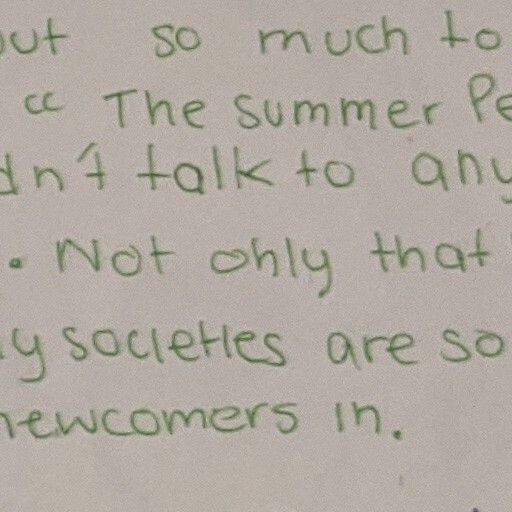 out so much to
“ The summer Pe
dn't talk to any
. Not only that
y societies are so
newcomers in.